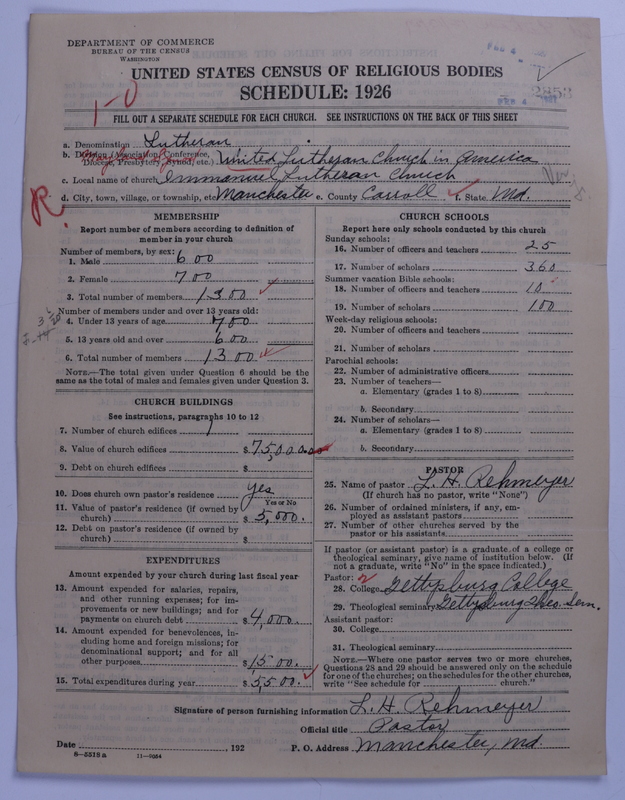 DEPARTMENT OF COMMERCE
BUREAU OF THE CENSUS
WASHINGTON
UNITED STATES CENSUS OF RELIGIOUS BODIES
SCHEDULE: 1926
2853
FEB 4 1927
1-0
FILL OUT A SEPARATE SCHEDULE FOR EACH CHURCH. SEE INSTRUCTIONS ON THE BACK OF THIS SHEET
a. Denomination Lutheran
b. Division (Association, Conference, Diocese, Presbytery, Synod, etc.) United Lutheran Church in America
c. Local name of church Immanuel Lutheran Church
d. City, town, village, or township, etc Manchester e. County Carroll f. State Md.
R.
MEMBERSHIP
Report number of members according to definition of
member in your church
Number of members, by sex:
1. Male 600
2. Female 700
3. Total number of members 1300
Number of members under and over 13 years old:
4. Under 13 years of age 700
5. 13 years old and over 600
6. Total number of members 1300
NOTE.—The total given under Question 6 should be
same as the total of males and females given under Question 3.
CHURCH BUILDINGS
See instructions, paragraphs 10 to 12
7. Number of church edifices 1
8. Value of church edifices $ 75,000.00
9. Debt on church edifices $
10. Does church own pastor's residence yes
Yes or No
11. Value of pastor's residence (if owned by
church) $ 5,000.
12. Debt on pastor's residence (if owned by
church) $
EXPENDITURES
Amount expended by your church during last fiscal year
13. Amount expended for salaries, repairs,
and other running expenses; for im-
provements or new buildings; and for
payments on church debt $ 4,000.
14. Amount expended for benevolences, in-
cluding home and foreign missions; for
denominational support; and for all
other purposes $ 1500.
15. Total expenditures during year $ 5,500.
CHURCH SCHOOLS
Report here only schools conducted by this church
Sunday schools:
16. Number of officers and teachers 25
17. Number of scholars 360
Summer vacation Bible schools:
18. Number of officers and teachers 10
19. Number of scholars 100
Week-day religious schools:
20. Number of officers and teachers
21. Number of scholars
Parochial schools:
22. Number of administrative officers
23. Number of teachers—
a. Elementary (grades 1 to 8)
b. Secondary
24. Number of scholars—
a. Elementary (grades 1 to 8)
b. Secondary
PASTOR
25. Name of pastor L. H. Rehmeyer
(If church has no pastor, write "None")
26. Number of ordained ministers, if any, em-
ployed as assistant pastors
27. Number of other churches served by the
pastor or his assistants
If pastor (or assistant pastor) is a graduate of a college or
theological seminary, give name of institution below. (If
not a graduate, write "No" in the space indicated.)
Pastor: 2
28. College Gettysburg College
29. Theological seminary Gettysburg Theo. Sem.
Assistant pastor:
30. College
31. Theological seminary
NOTE.—Where one pastor serves two or more churches,
Questions 28 and 29 should be answered only on the schedule
for one of the churches; on the schedules for the other churches,
write "See schedule for church."
Signature of person furnishing information L. H. Rehmeyer
Official title Pastor
Date , 192 P. O. Address Manchester, Md.
8—5518 a 11—8684